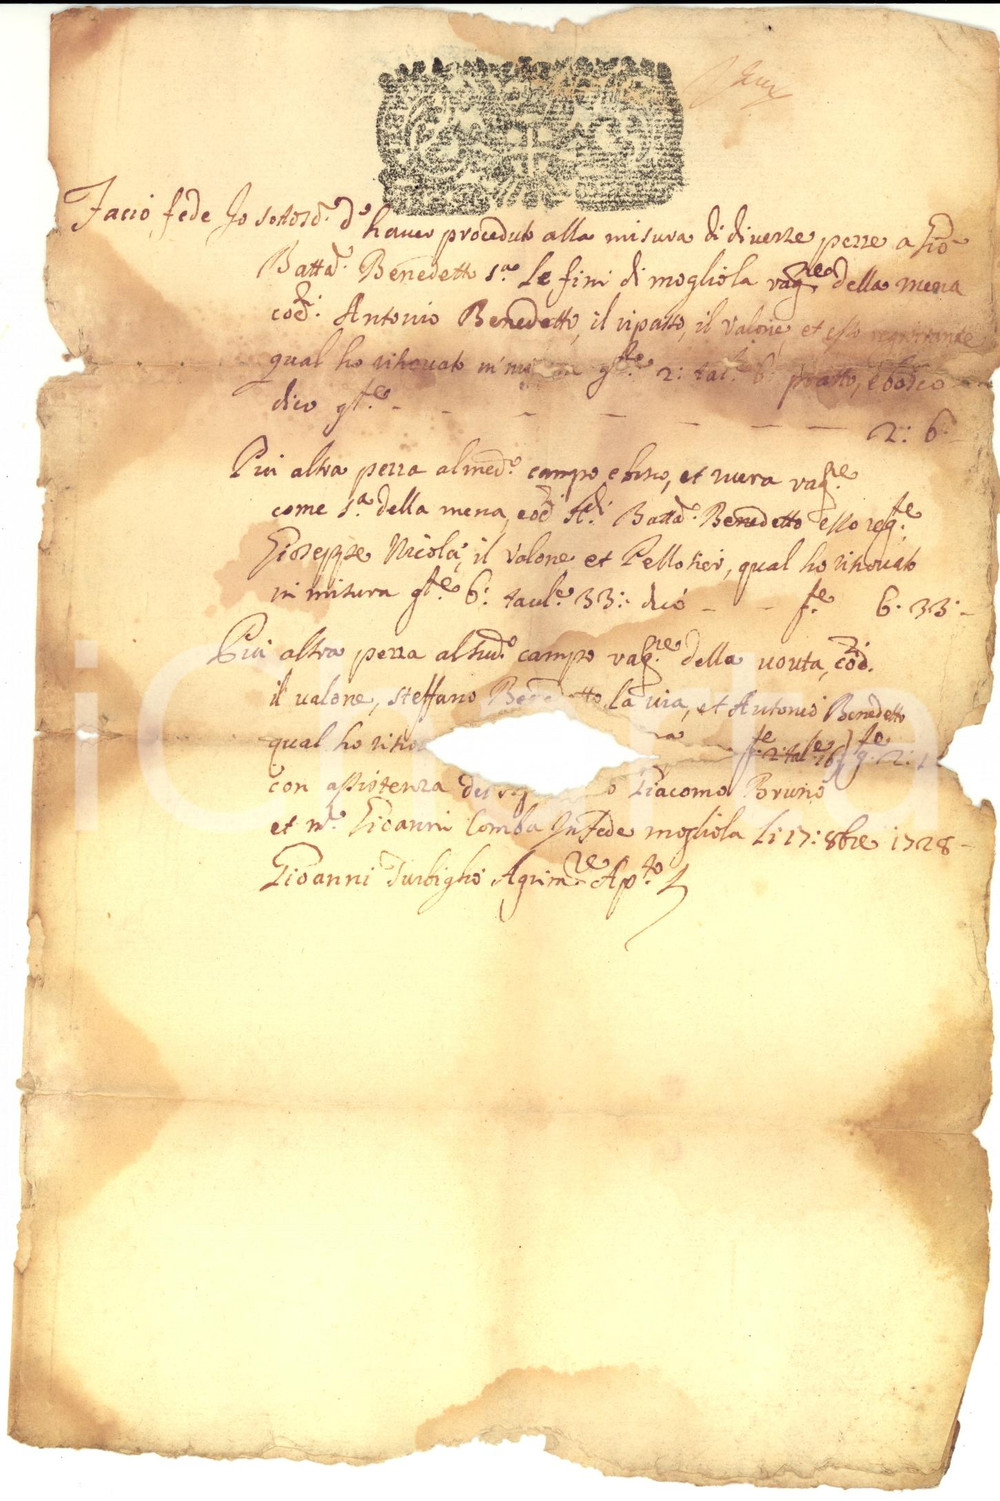 Facio fede Io sottosd.° d'haver procedutо alla misura di diverze pezze a Gio
Battã. Benedetto s.ª Le fini di mogliola vag.re della mena
cod.i Antonio Benedetto, il ripatto, il valone, et esso
qual ho ritrovato in gte 2: tal.e 6: pratto, e bosco
dico gt.e - - - - - 2: 6:
Piu altra pezza al med.° campo e bosco, et rivera vag.re
come s.ª della mena, cod.i Battã. Benedetto esso reg.te
Gioseppe Nicola, il valone et Pellotier, qual ho ritrovato
in misura gt.e 6: taul.e 33: dico - - f.e 6. 33:-
Piu altra pezza al sud.° campo vag.re della vouta, cod.i
il valone, steffano Benedetto la via, et Antonio Benedetto
qual ho 2: tal.e g.e 2:
con assistenza del Giacomo Bruno
et m.° Gioanni Comba In fede mogliola li 17: 8bre 1728-
Gioanni Turbiglio Agrim.re Ap.to
icharta